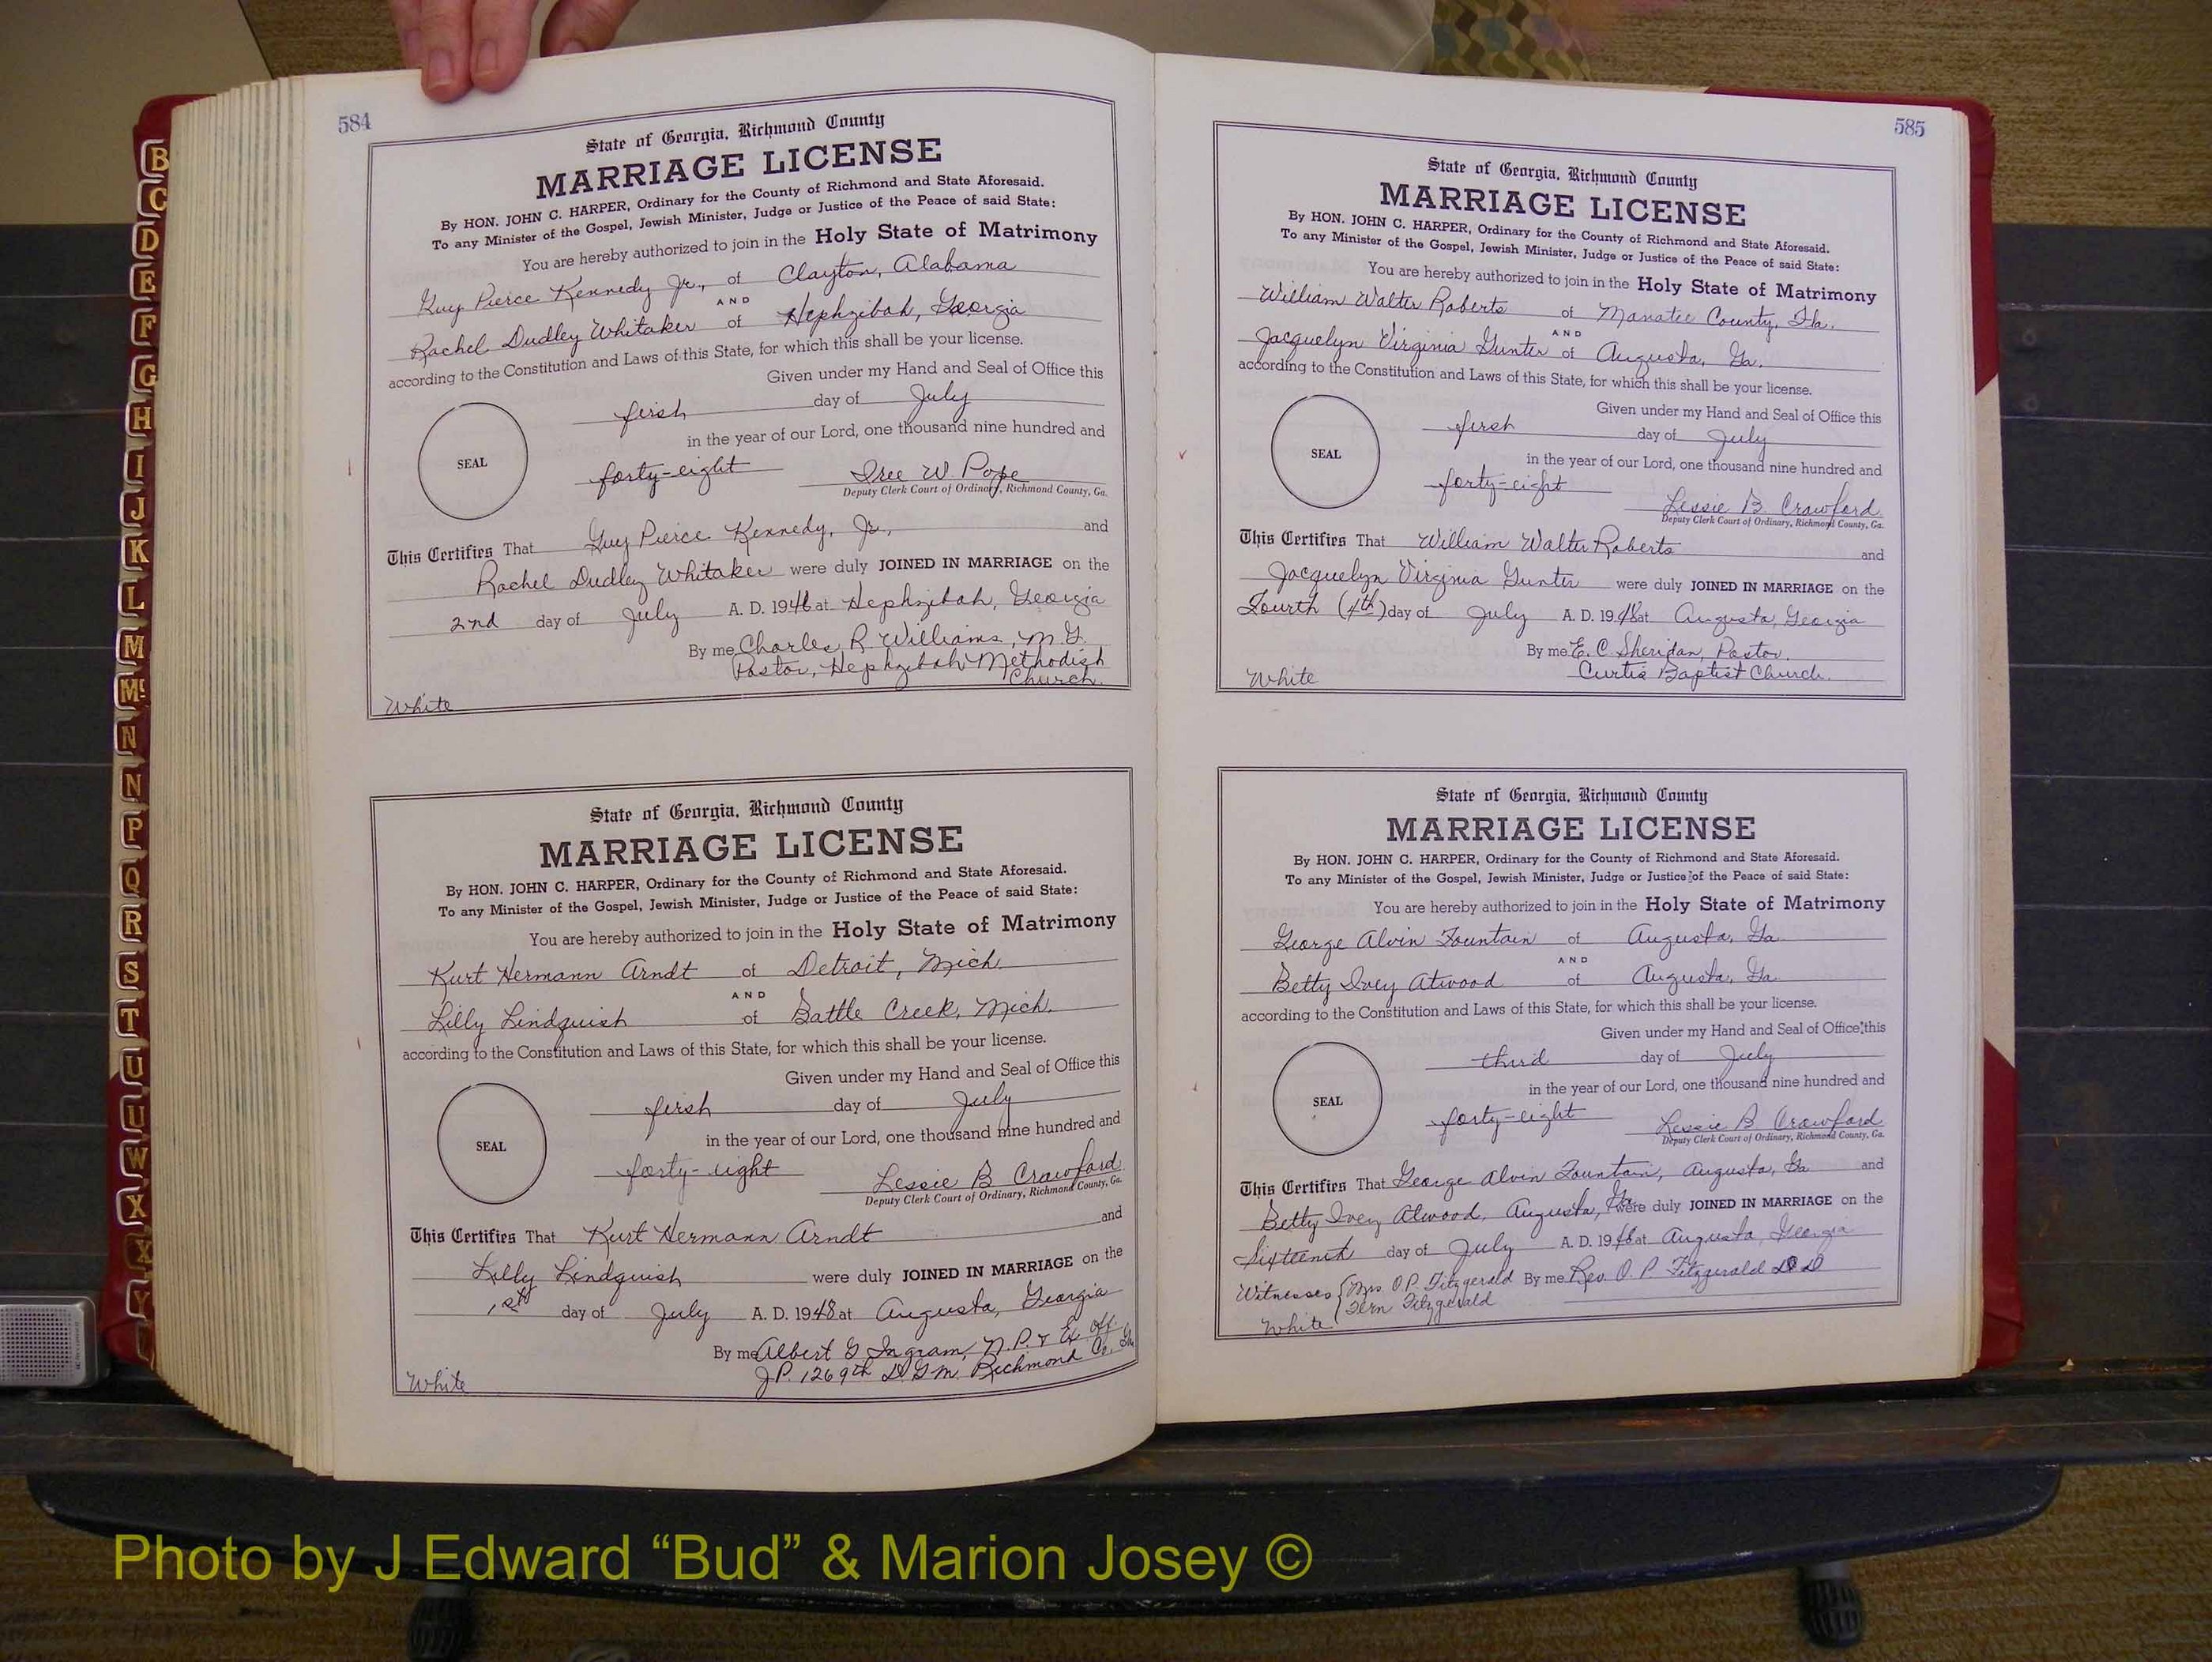 584
State of Georgia, Richmond County
MARRIAGE LICENSE
By HON. JOHN C. HARPER, Ordinary for the County of Richmond and State Aforesaid.
To any Minister of the Gospel, Jewish Minister, Judge or Justice of the Peace of said State:
You are hereby authorized to join in the Holy State of Matrimony
Guy Pierce Kennedy Jr., of Clayton, Alabama
AND
Rachel Dudley Whitaker of Hephzibah, Georgia
according to the Constitution and Laws of this State, for which this shall be your license.
Given under my Hand and Seal of Office this
first day of July
in the year of our Lord, one thousand nine hundred and
SEAL
forty-eight Iree W. Pope
Deputy Clerk Court of Ordinary, Richmond County, Ga.
This Certifies That Guy Pierce Kennedy, Jr., and
Rachel Dudley Whitaker were duly JOINED IN MARRIAGE on the
2nd day of July A. D. 1948 at Hephzibah, Georgia
By me Charles R. Williams, M.G.
Pastor, Hephzibah Methodist
Church.
White
State of Georgia, Richmond County
MARRIAGE LICENSE
By HON. JOHN C. HARPER, Ordinary for the County of Richmond and State Aforesaid.
To any Minister of the Gospel, Jewish Minister, Judge or Justice of the Peace of said State:
You are hereby authorized to join in the Holy State of Matrimony
Kurt Hermann Arndt of Detroit, Mich.
AND
Lilly Lindquish of Battle Creek, Mich.
according to the Constitution and Laws of this State, for which this shall be your license.
Given under my Hand and Seal of Office this
first day of July
in the year of our Lord, one thousand nine hundred and
SEAL
forty-eight Lessie B Crawford
Deputy Clerk Court of Ordinary, Richmond County, Ga.
This Certifies That Kurt Hermann Arndt and
Lilly Lindquish were duly JOINED IN MARRIAGE on the
1st day of July A. D. 1948 at Augusta, Georgia
By me Albert G Ingram, N.P. & Ex Off.
J.P. 1269th D.G.M. Richmond Co. Ga
White
585
State of Georgia, Richmond County
MARRIAGE LICENSE
By HON. JOHN C. HARPER, Ordinary for the County of Richmond and State Aforesaid.
To any Minister of the Gospel, Jewish Minister, Judge or Justice of the Peace of said State:
You are hereby authorized to join in the Holy State of Matrimony
William Walter Roberts of Manatee County, Fla.
AND
Jacquelyn Virginia Gunter of Augusta, Ga.
according to the Constitution and Laws of this State, for which this shall be your license.
Given under my Hand and Seal of Office this
first day of July
in the year of our Lord, one thousand nine hundred and
SEAL
forty-eight Lessie B. Crawford
Deputy Clerk Court of Ordinary, Richmond County, Ga.
This Certifies That William Walter Roberts and
Jacquelyn Virginia Gunter were duly JOINED IN MARRIAGE on the
Fourth (4th) day of July A. D. 1948 at Augusta, Georgia
By me E. C. Sheridan, Pastor.
Curtis Baptist Church.
White
State of Georgia, Richmond County
MARRIAGE LICENSE
By HON. JOHN C. HARPER, Ordinary for the County of Richmond and State Aforesaid.
To any Minister of the Gospel, Jewish Minister, Judge or Justice of the Peace of said State:
You are hereby authorized to join in the Holy State of Matrimony
George Alvin Fountain of Augusta, Ga.
AND
Betty Ivey Atwood of Augusta, Ga.
according to the Constitution and Laws of this State, for which this shall be your license.
Given under my Hand and Seal of Office this
third day of July
in the year of our Lord, one thousand nine hundred and
SEAL
forty-eight Lessie B Crawford
Deputy Clerk Court of Ordinary, Richmond County, Ga.
This Certifies That George Alvin Fountain, Augusta, Ga and
Betty Ivey Atwood, Augusta, Ga. were duly JOINED IN MARRIAGE on the
Sixteenth day of July A. D. 1948 at Augusta, Georgia
Witnesses { Mrs O.P. Fitzgerald By me Rev. O. P. Fitzgerald D D
Fern Fitzgerald
White
B
C
D
E
F
G
H
I
J
K
L
M
Mc
N
N
P
Q
R
S
T
U
U
W
X
X
Y
Photo by J Edward “Bud” & Marion Josey ©